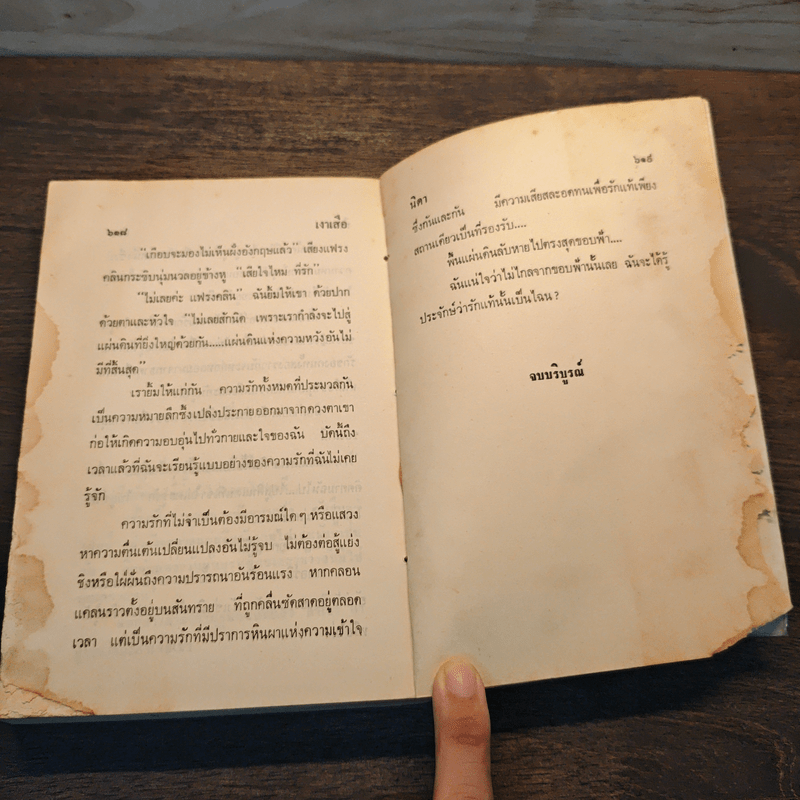 ๖๑๘ เงาเสือ
"เกือบจะมองไม่เห็นฝั่งอังกฤษแล้ว" เสียงแฟรง
คลินกระซิบนุ่มนวลอยู่ข้างหู "เสียใจไหม ที่รัก"
"ไม่เลยค่ะ แฟรงคลิน" ฉันยิ้มให้เขา ด้วยปาก
ด้วยตาและหัวใจ "ไม่เลยสักนิด เพราะเรากำลังจะไปสู่
แผ่นดินที่ยิ่งใหญ่ด้วยกัน.....แผ่นดินแห่งความหวังอันไม่
มีที่สิ้นสุด"
เรายิ้มให้แก่กัน ความรักทั้งหมดที่ประมวลกัน
เป็นความหมายลึกซึ้งเปล่งประกายออกมาจากดวงตาเขา
ก่อให้เกิดความอบอุ่นไปทั่วกายและใจของฉัน บัดนี้ถึง
เวลาแล้วที่ฉันจะเรียนรู้แบบอย่างของความรักที่ฉันไม่เคย
รู้จัก
ความรักที่ไม่จำเป็นต้องมีอารมณ์ใด ๆ หรือแสวง
หาความตื่นเต้นเปลี่ยนแปลงอันไม่รู้จบ ไม่ต้องต่อสู้แย่ง
ชิงหรือใฝ่ฝันถึงความปรารถนาอันร้อนแรง หากคลอน
แคลนราวตั้งอยู่บนสันทราย ที่ถูกคลื่นซัดสาดอยู่ตลอด
เวลา แต่เป็นความรักที่มีปราการหินผาแห่งความเข้าใจ
นิดา ๖๑๙
ซึ่งกันและกัน มีความเสียสละอดทนเพื่อรักแท้เพียง
สถานเดียวเป็นที่รองรับ....
พื้นแผ่นดินลับหายไปตรงสุดขอบฟ้า....
ฉันแน่ใจว่าไม่ไกลจากขอบฟ้านั้นเลย ฉันจะได้รู้
ประจักษ์ว่ารักแท้นั้นเป็นไฉน ?
จบบริบูรณ์